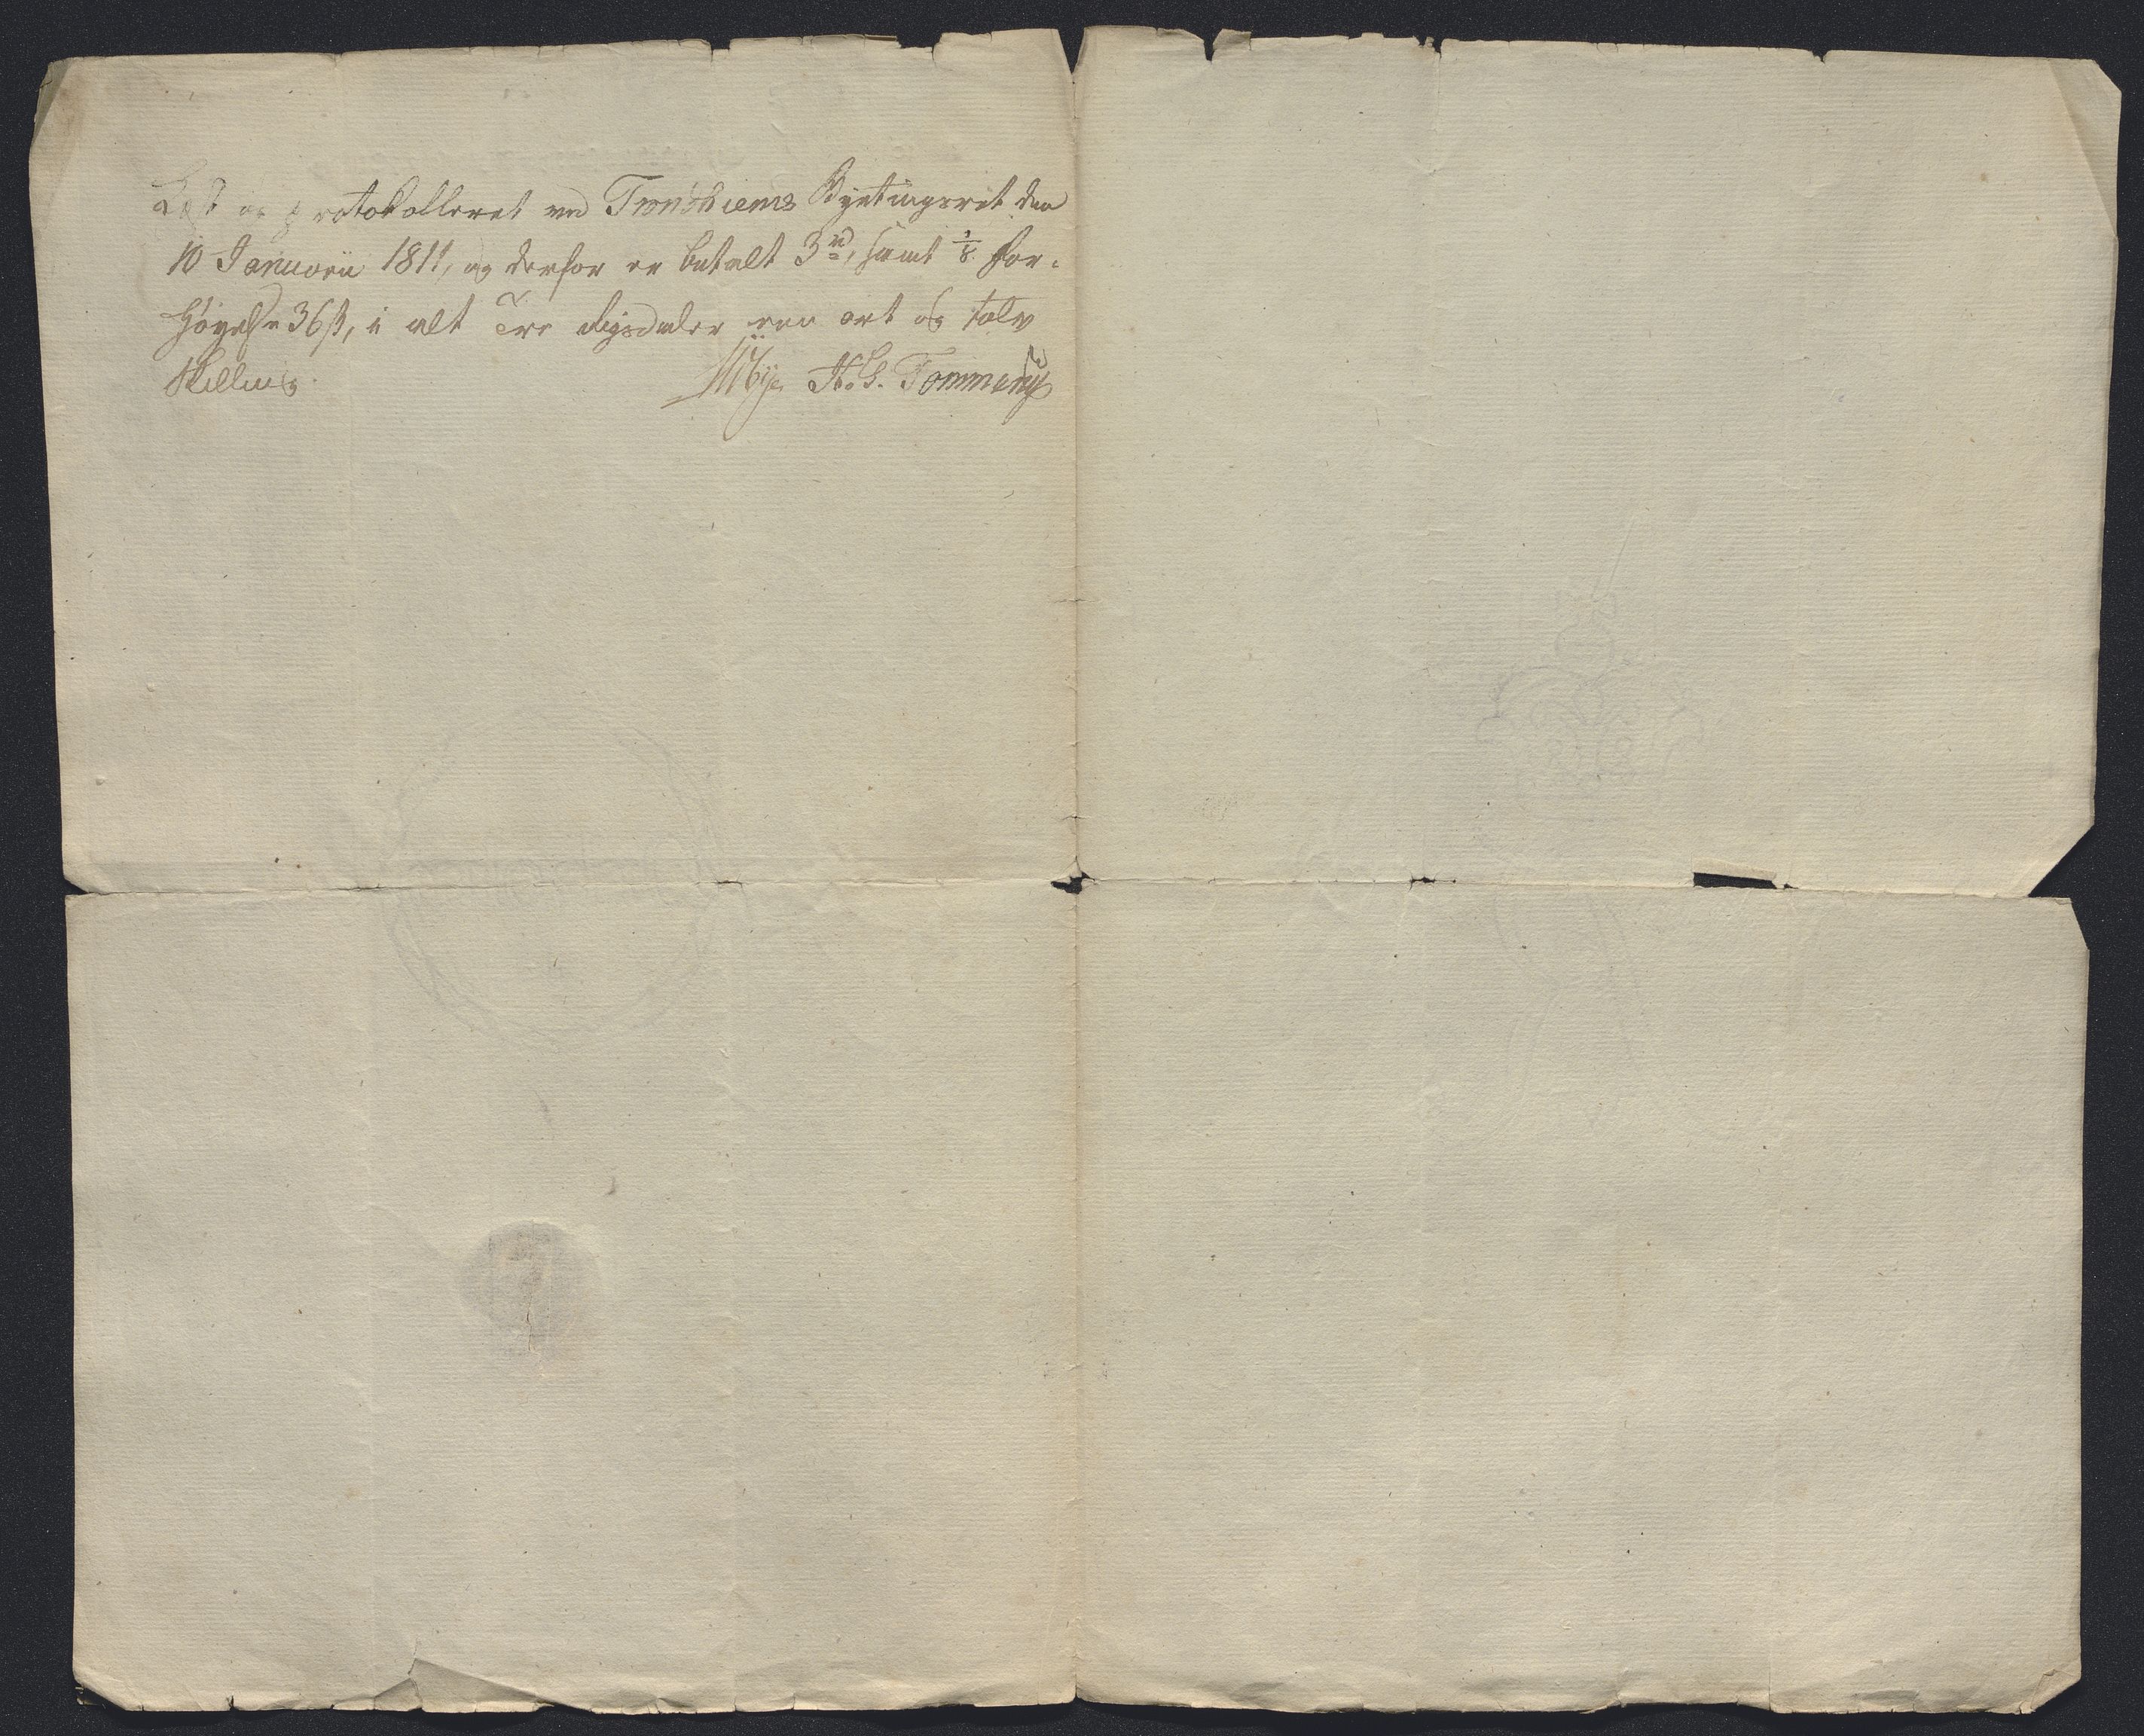 Læst og protokolleret ved Trondhiems Byetingsret den
10 Januarii 1811, og derfor er betalt 3 rd, samt 1/8 For-
høyelse 36 ß, i alt Tre Rigsdaler een ort og tolv
Skilling. H. S. Tommeng